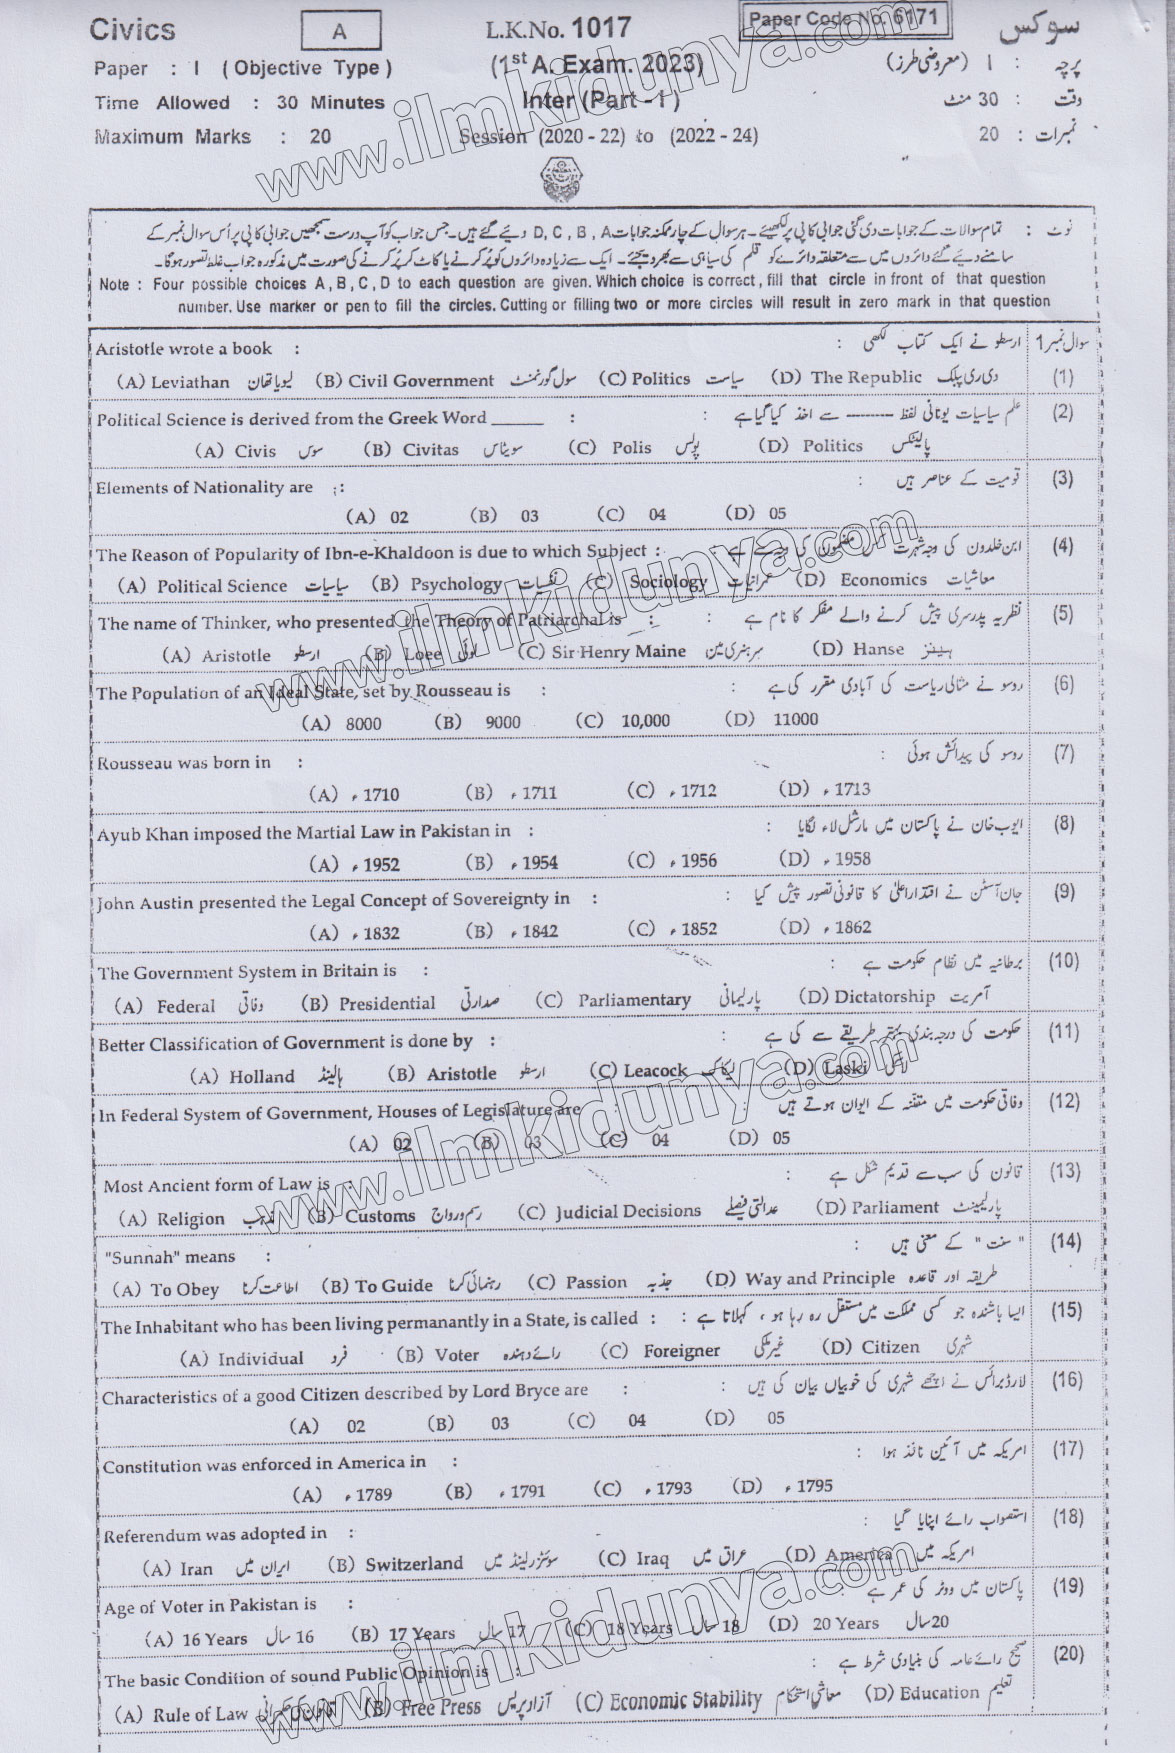 Civics A L.K.No. 1017 Paper Code No. 6171 سوکس
Paper : I ( Objective Type ) (1st A. Exam. 2023) پرچہ : I (معروضی طرز)
Time Allowed : 30 Minutes Inter (Part - I ) وقت : 30 منٹ
Maximum Marks : 20 Session (2020 - 22) to (2022 - 24) نمبرات : 20
نوٹ : تمام سوالات کے جوابات دی گئی جوابی کاپی پر لکھیے۔ ہر سوال کے چار ممکنہ جوابات D , C , B , A دیے گئے ہیں۔ جس جواب کو آپ درست سمجھیں جوابی کاپی پر اُس سوال نمبر کے
سامنے دیے گئے دائروں میں سے متعلقہ دائرے کو قلم کی سیاہی سے بھر دیجئے۔ ایک سے زیادہ دائروں کو پُر کرنے یا کاٹ کر پُر کرنے کی صورت میں مذکورہ جواب غلط تصور ہو گا۔
Note : Four possible choices A , B , C , D to each question are given. Which choice is correct , fill that circle in front of that question
number. Use marker or pen to fill the circles. Cutting or filling two or more circles will result in zero mark in that question
Aristotle wrote a book : ارسطو نے ایک کتاب لکھی : سوال نمبر 1
(A) Leviathan لیویاتھان (B) Civil Government سول گورنمنٹ (C) Politics سیاست (D) The Republic دی ری پبلک (1)
Political Science is derived from the Greek Word _____ : علم سیاسیات یونانی لفظ -------- سے اخذ کیا گیا ہے : (2)
(A) Civis سوس (B) Civitas سویٹاس (C) Polis پولس (D) Politics پالیٹکس
Elements of Nationality are : قومیت کے عناصر ہیں : (3)
(A) 02 (B) 03 (C) 04 (D) 05
The Reason of Popularity of Ibn-e-Khaldoon is due to which Subject : ابن خلدون کی وجہ شہرت کس مضمون کی وجہ سے ہے : (4)
(A) Political Science سیاسیات (B) Psychology نفسیات (C) Sociology عمرانیات (D) Economics معاشیات
The name of Thinker, who presented the Theory of Patriarchal is : نظریہ پدرسری پیش کرنے والے مفکر کا نام ہے : (5)
(A) Aristotle ارسطو (B) Loee لوئی (C) Sir Henry Maine سر ہنری مین (D) Hanse ہینز
The Population of an Ideal State, set by Rousseau is : روسو نے مثالی ریاست کی آبادی مقرر کی ہے : (6)
(A) 8000 (B) 9000 (C) 10,000 (D) 11000
Rousseau was born in : روسو کی پیدائش ہوئی : (7)
(A) ء 1710 (B) ء 1711 (C) ء 1712 (D) ء 1713
Ayub Khan imposed the Martial Law in Pakistan in : ایوب خان نے پاکستان میں مارشل لاء لگایا : (8)
(A) ء 1952 (B) ء 1954 (C) ء 1956 (D) ء 1958
John Austin presented the Legal Concept of Sovereignty in : جان آسٹن نے اقتدار اعلیٰ کا قانونی تصور پیش کیا : (9)
(A) ء 1832 (B) ء 1842 (C) ء 1852 (D) ء 1862
The Government System in Britain is : برطانیہ میں نظام حکومت ہے : (10)
(A) Federal وفاقی (B) Presidential صدارتی (C) Parliamentary پارلیمانی (D) Dictatorship آمریت
Better Classification of Government is done by : حکومت کی درجہ بندی بہتر طریقے سے کی ہے : (11)
(A) Holland ہالینڈ (B) Aristotle ارسطو (C) Leacock لیکاک (D) Laski لاسکی
In Federal System of Government, Houses of Legislature are : وفاقی حکومت میں مقننہ کے ایوان ہوتے ہیں : (12)
(A) 02 (B) 03 (C) 04 (D) 05
Most Ancient form of Law is : قانون کی سب سے قدیم شکل ہے : (13)
(A) Religion مذہب (B) Customs رسم و رواج (C) Judicial Decisions عدالتی فیصلے (D) Parliament پارلیمینٹ
"Sunnah" means : "سنت" کے معنی ہیں : (14)
(A) To Obey اطاعت کرنا (B) To Guide رہنمائی کرنا (C) Passion جذبہ (D) Way and Principle طریقہ اور قاعدہ
The Inhabitant who has been living permanantly in a State, is called : ایسا باشندہ جو کسی مملکت میں مستقل رہ رہا ہو ، کہلاتا ہے : (15)
(A) Individual فرد (B) Voter رائے دہندہ (C) Foreigner غیر ملکی (D) Citizen شہری
Characteristics of a good Citizen described by Lord Bryce are : لارڈ برائس نے اچھے شہری کی خوبیاں بیان کی ہیں : (16)
(A) 02 (B) 03 (C) 04 (D) 05
Constitution was enforced in America in : امریکہ میں آئین نافذ ہوا : (17)
(A) ء 1789 (B) ء 1791 (C) ء 1793 (D) ء 1795
Referendum was adopted in : استصواب رائے اپنایا گیا : (18)
(A) Iran ایران میں (B) Switzerland سوئٹزرلینڈ میں (C) Iraq عراق میں (D) America امریکہ میں
Age of Voter in Pakistan is : پاکستان میں ووٹر کی عمر ہے : (19)
(A) 16 Years 16 سال (B) 17 Years 17 سال (C) 18 Years 18 سال (D) 20 Years 20 سال
The basic Condition of sound Public Opinion is : صحیح رائے عامہ کی بنیادی شرط ہے : (20)
(A) Rule of Law قانون کی حکمرانی (B) Free Press آزاد پریس (C) Economic Stability معاشی استحکام (D) Education تعلیم
www.ilmkidunya.com
www.ilmkidunya.com
www.ilmkidunya.com
www.ilmkidunya.com